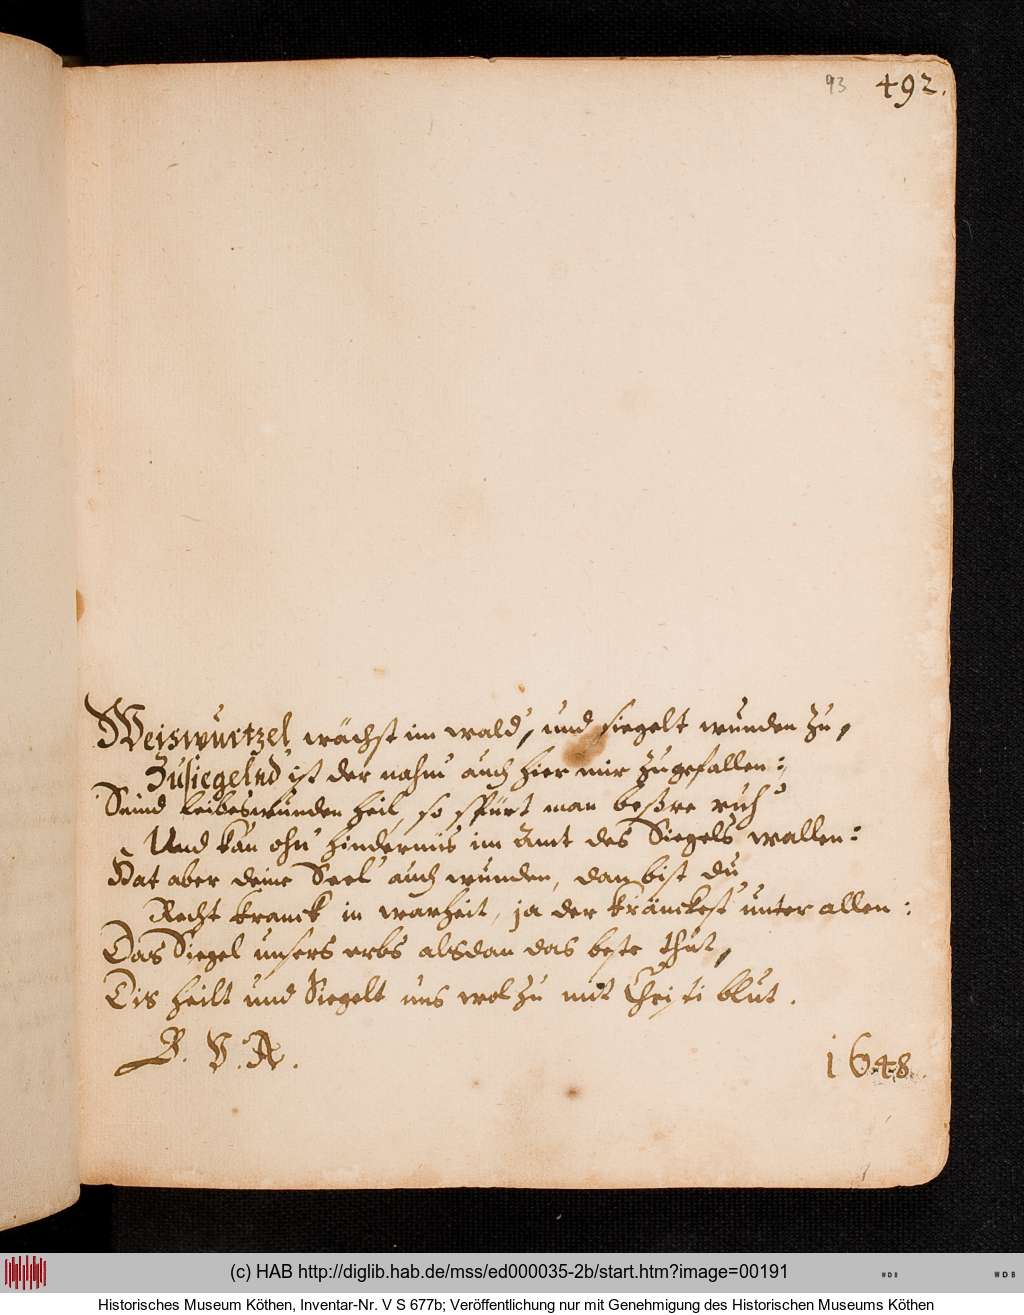 93 492.
Weiswurtzel wächst im wald, und siegelt wunden zu,
Zusiegelnd ist der nahm' auch hier mir zugefallen:
Seind leibeswunden heil, so spürt man beßre ruh'
Und kan ohn' hindernüs im Amt des Siegels wallen:
Hat aber deine Seel' auch wunden, dan bist du
Recht kranck in warheit, ja der kränckest' unter allen:
Das Siegel unsers erbs alsdan das beste thut,
Dis heilt und Siegelt uns wol zu mit Christi blut.
B. V. A. 1648.
(c) HAB http://diglib.hab.de/mss/ed000035-2b/start.htm?image=00191
WDB WDB
Historisches Museum Köthen, Inventar-Nr. V S 677b; Veröffentlichung nur mit Genehmigung des Historischen Museums Köthen